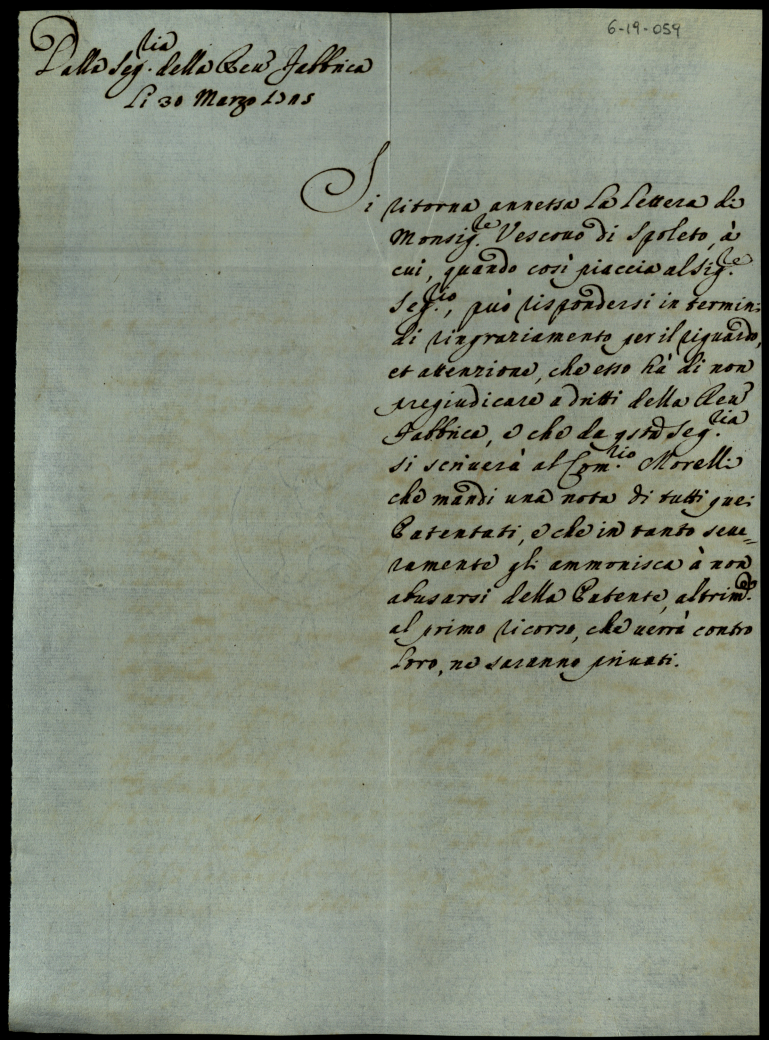 6-19-059
Dalla Seg.ria della Reu. Fabbrica
Li 30 Marzo
Si ritorna annessa La Lettera di
Monsig.re Vescouo di Spoleto, à
cui, quando così piaccia al Sig.re
Seg.rio, può rispondersi in termini
di ringraziamento per il riguardo,
et attenzione, che esso hà di non
pregiudicare a dritti della Reu.
Fabbrica, e che da qsta Seg.ria
si scriuerà al Com.rio Morelli
che mandi una nota di tutti quei
Patentati, e che in tanto seue=
ramente gli ammonisca à non
abusarsi della Patente, altrim.e
al primo ricorso, che uerrà contro
Loro, ne saranno priuati.